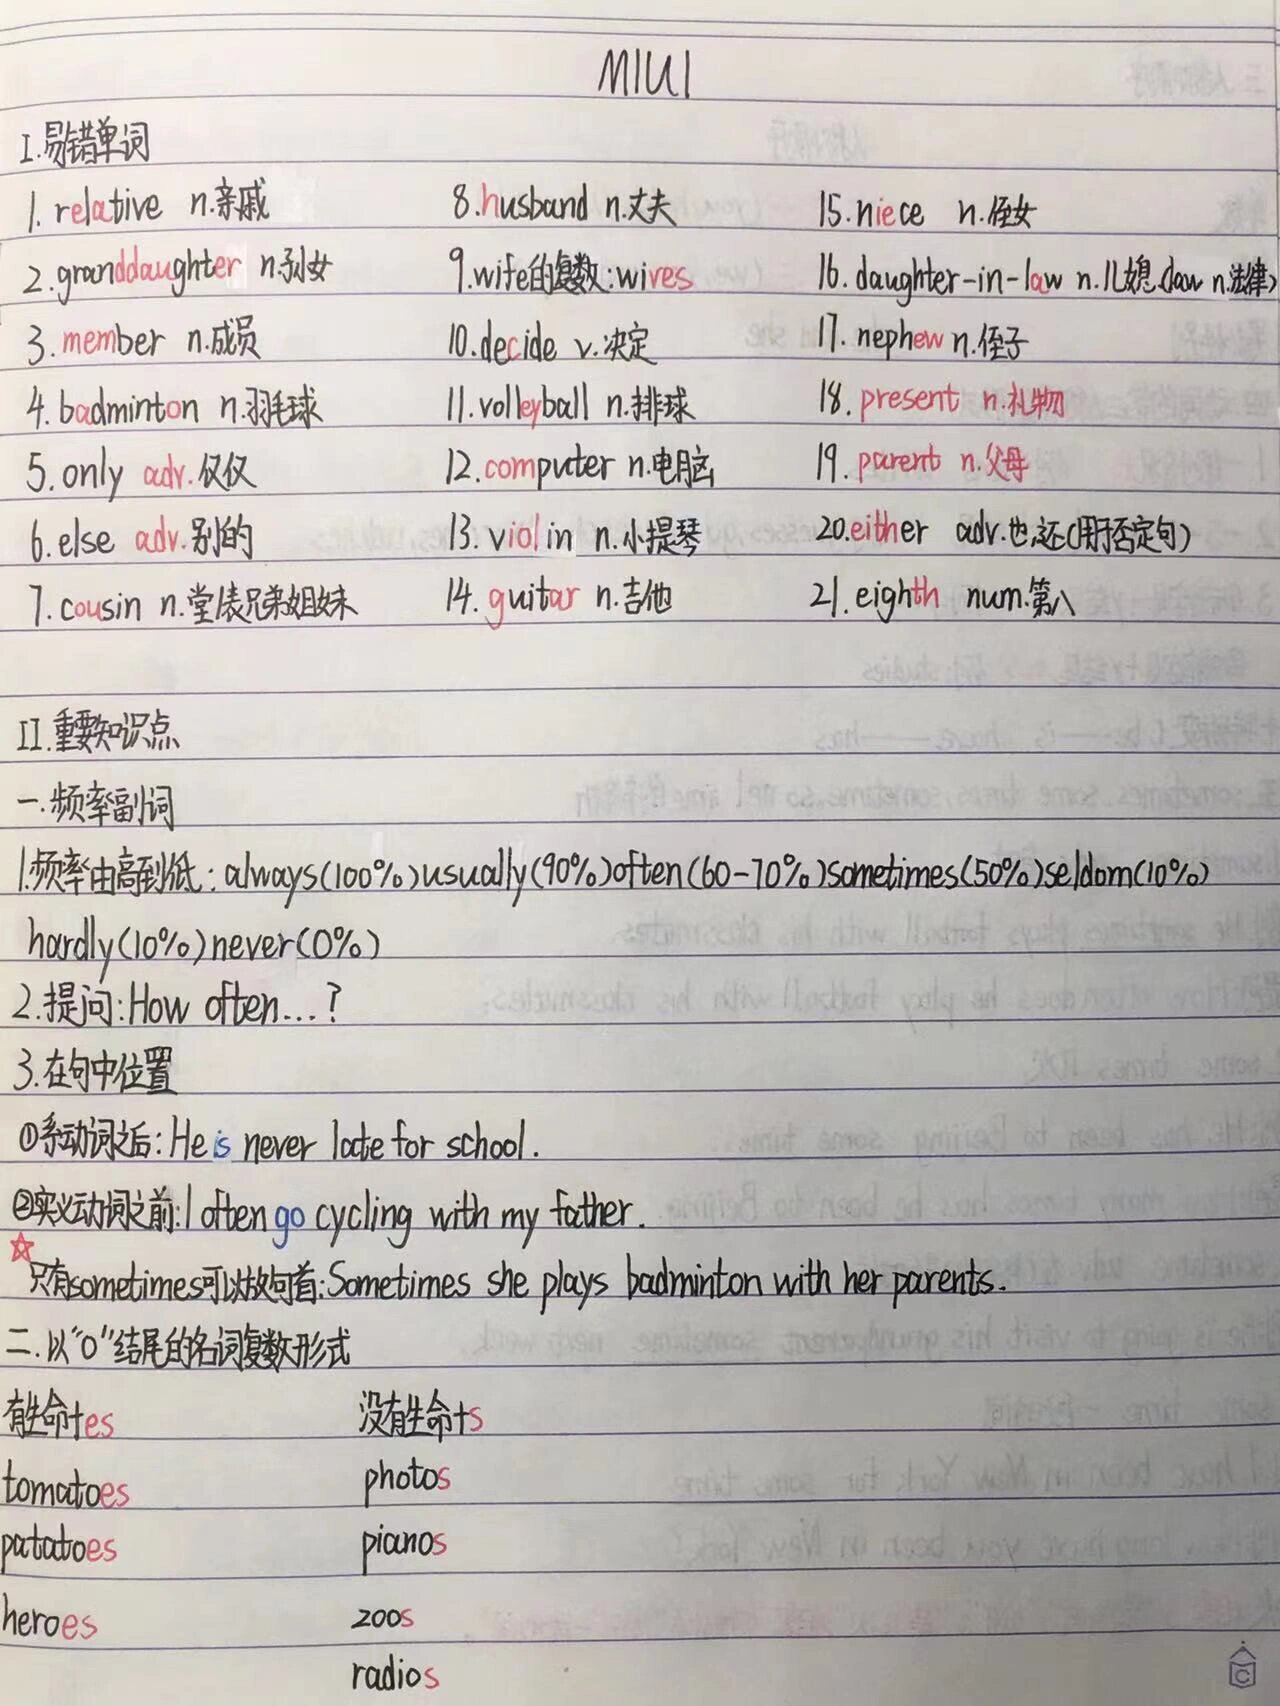 M1U1
I.易错单词
1.relative n.亲戚 8.husband n.丈夫 15.niece n.侄女
2.granddaughter n.孙女 9.wife的复数:wives 16.daughter-in-law n.儿媳(law n.法律)
3.member n.成员 10.decide v.决定 17.nephew n.侄子
4.badminton n.羽毛球 11.volleyball n.排球 18.present n.礼物
5.only adv.仅仅 12.computer n.电脑 19.parent n.父母
6.else adv.别的 13.violin n.小提琴 20.either adv.也,还(用于否定句)
7.cousin n.堂(表)兄弟姐妹 14.guitar n.吉他 21.eighth num.第八
II.重要知识点
一.频率副词
1.频率由高到低:always(100%)usually(90%)often(60-70%)sometimes(50%)seldom(10%)
hardly(10%)never(0%)
2.提问:How often...?
3.在句中位置
①系动词之后:He is never late for school.
②实义动词之前:I often go cycling with my father.
☆只有sometimes可以放句首:Sometimes she plays badminton with her parents.
二.以"O"结尾的名词复数形式
有生命+es 没有生命+s
tomatoes photos
patatoes pianos
heroes zoos
radios